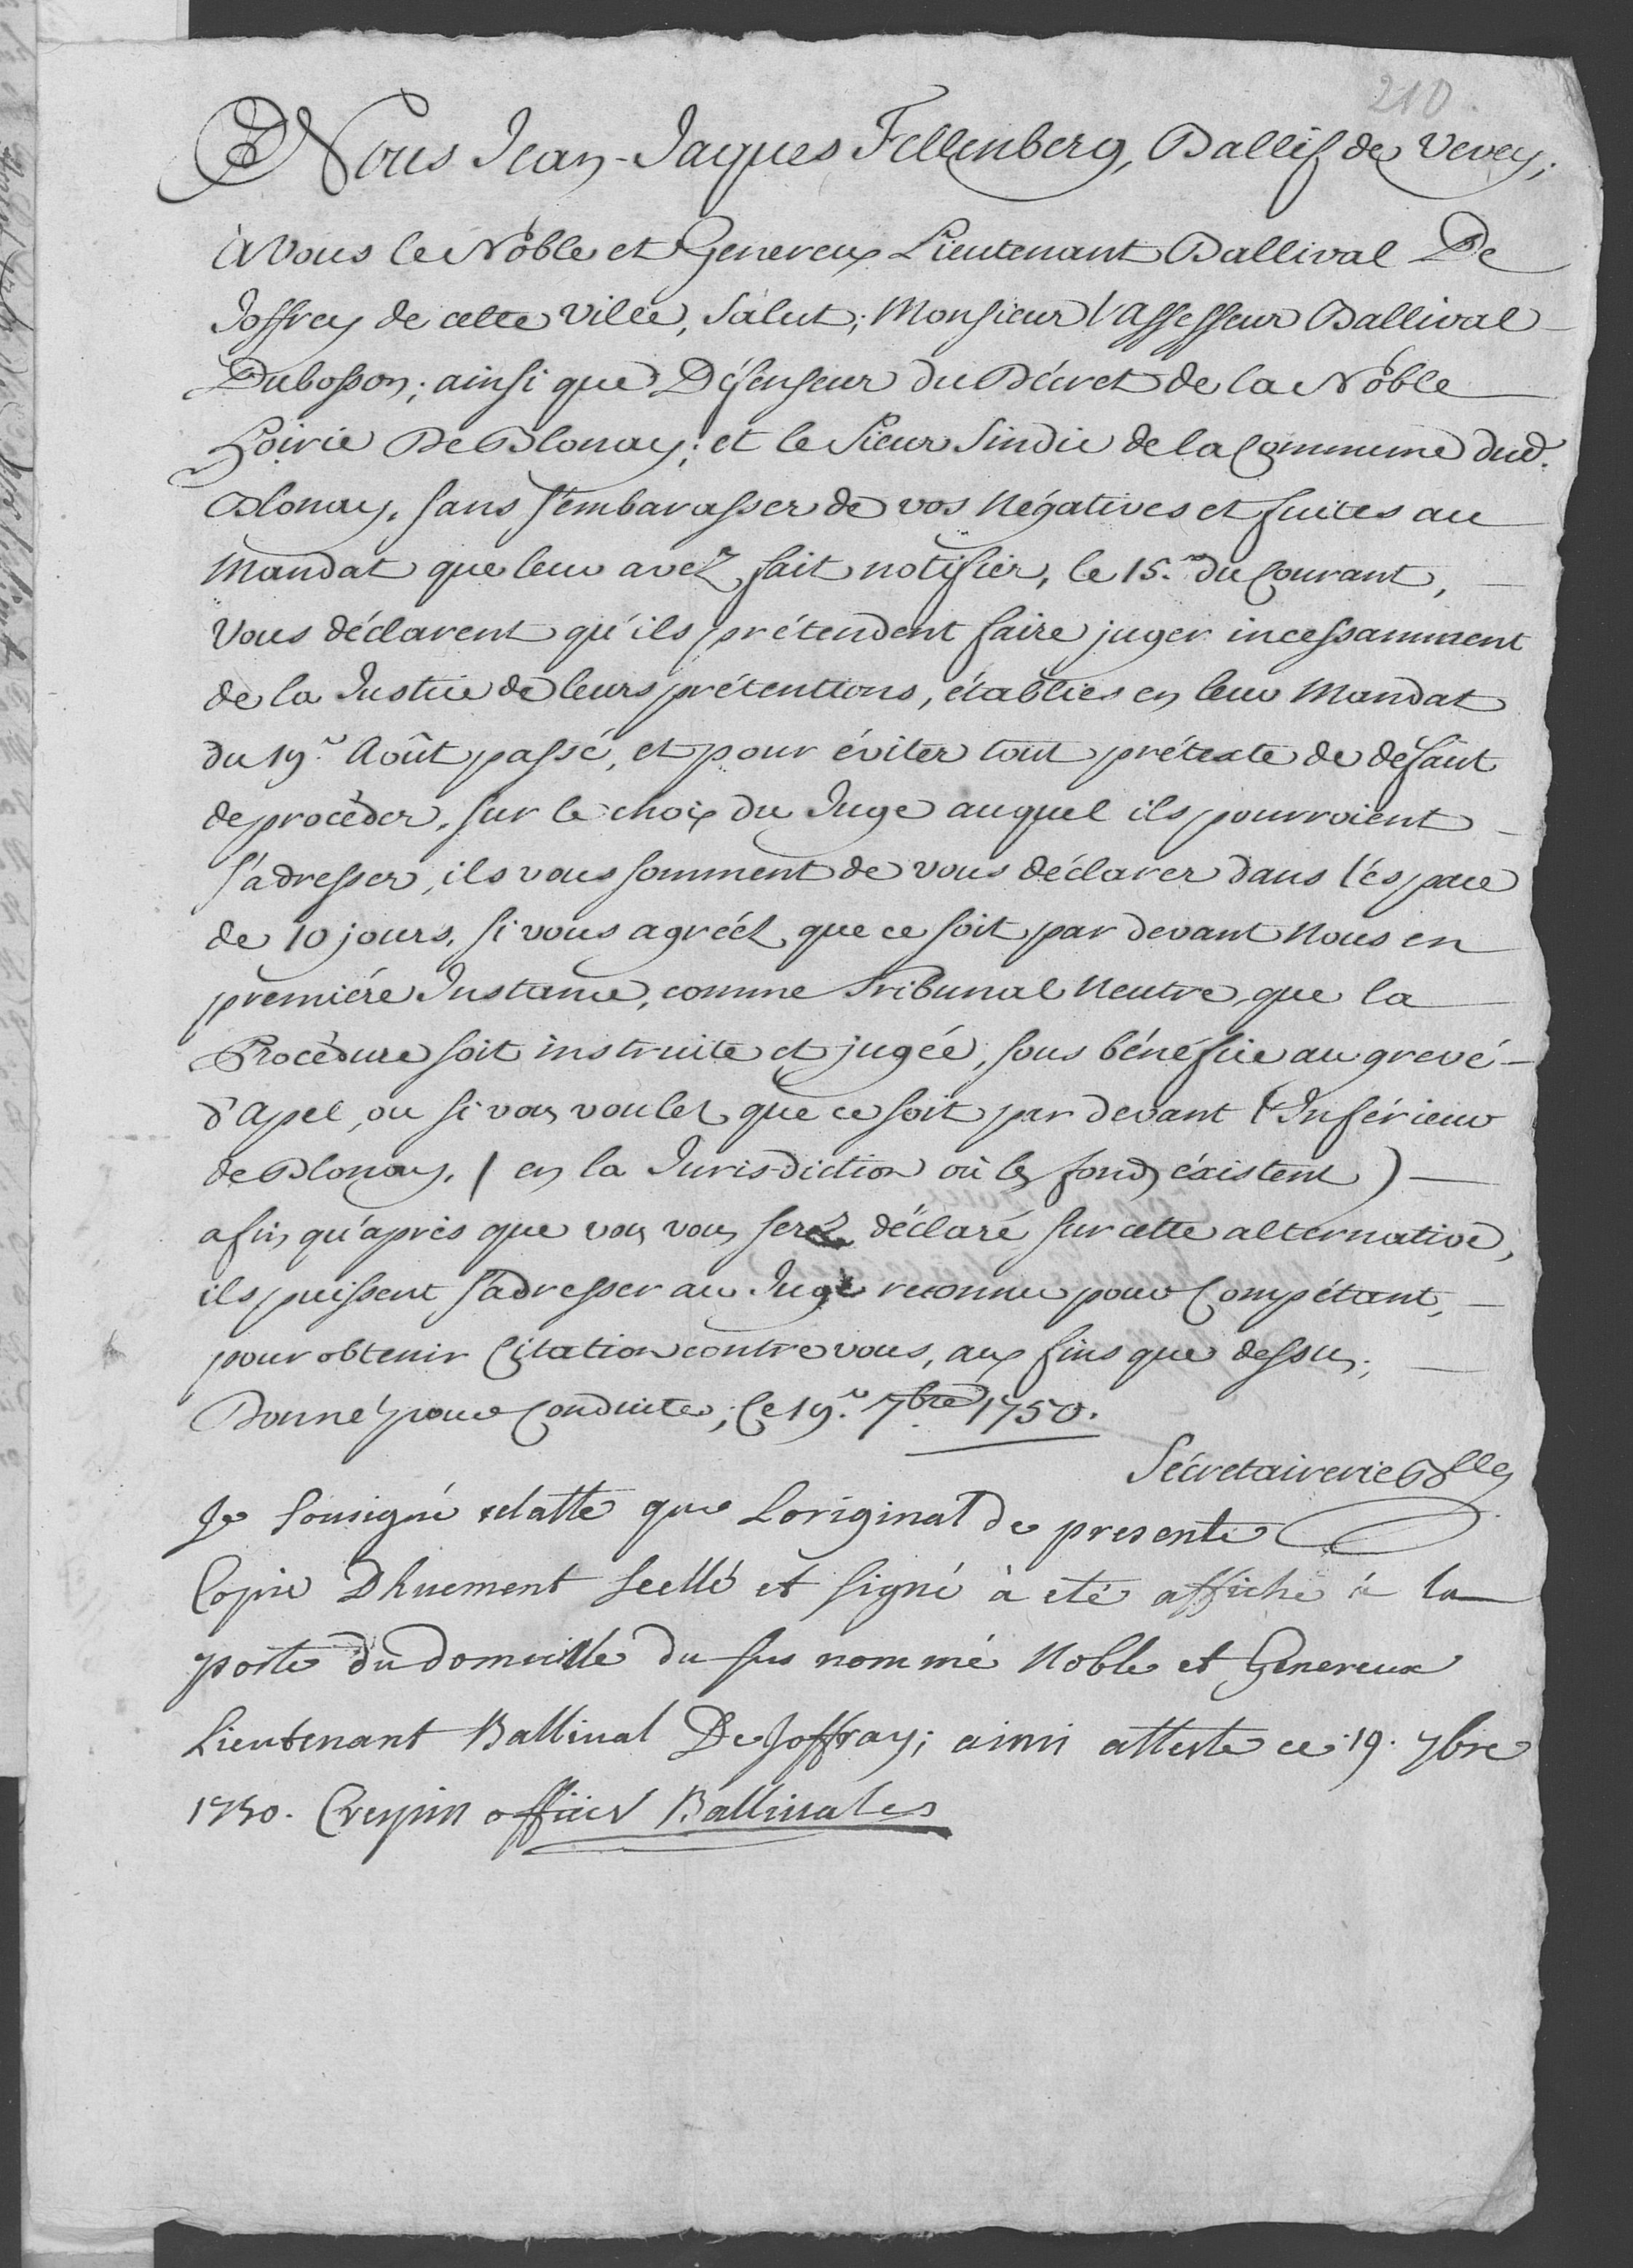 210.
Nous Jean-Jaques Fellenberg, Ballif de Vevey;
à Vous le Noble et Genereux Lieutenant Ballival De
Joffrey de cette Ville, Salut; Monsieur l'Assesseur Ballival
Dubosson; ainsi que Défenseur du Décret de la Noble
Hoirie De Blonay; et le Sieur Sindic de la Commune dud.
Blonay, sans s'embarasser de vos Négatives et suites au
Mandat que leur avez fait notifier, le 15.e du Courant,
Vous déclarent qu'ils prétendent faire juger incessamment
de la Justice de leurs prétentions, établies en leur Mandat
du 19.e Août passé, et pour éviter tout prétexte de défaut
de procéder, sur le choix du Juge auquel ils pourroient
s'adresser, ils vous somment de vous déclarer dans l'éspace
de 10 jours, si vous agréés que ce soit par devant Nous en
premiére Instance, comme Tribunal Neutre, que la
Procédure soit instruite et jugée, sous bénéfice au grevé
d'Apel, ou si vous voulés que ce soit par devant l'Inférieur
de Blonay, (en la Jurisdiction où les fonds éxistent)
afin qu'après que vous vous serez déclaré sur cette alternative,
ils puissent s'adresser au Juge reconnu pour Compétant,
pour obtenir Citation contre vous, aux fins que dessus;
Donné pour Conduite, ce 19.e 7bre 1750.
Sécretairerie Balle
Je Sousigné relatte que Loriginal de presente
Copie Dhuement Scellé et signé à eté affiché à la
porte du domicille du sus nommé Noble et Genereux
Lieutenant Ballival De Joffray; ainsi atteste ce 19. 7bre
1750. Crespin officier Ballivales